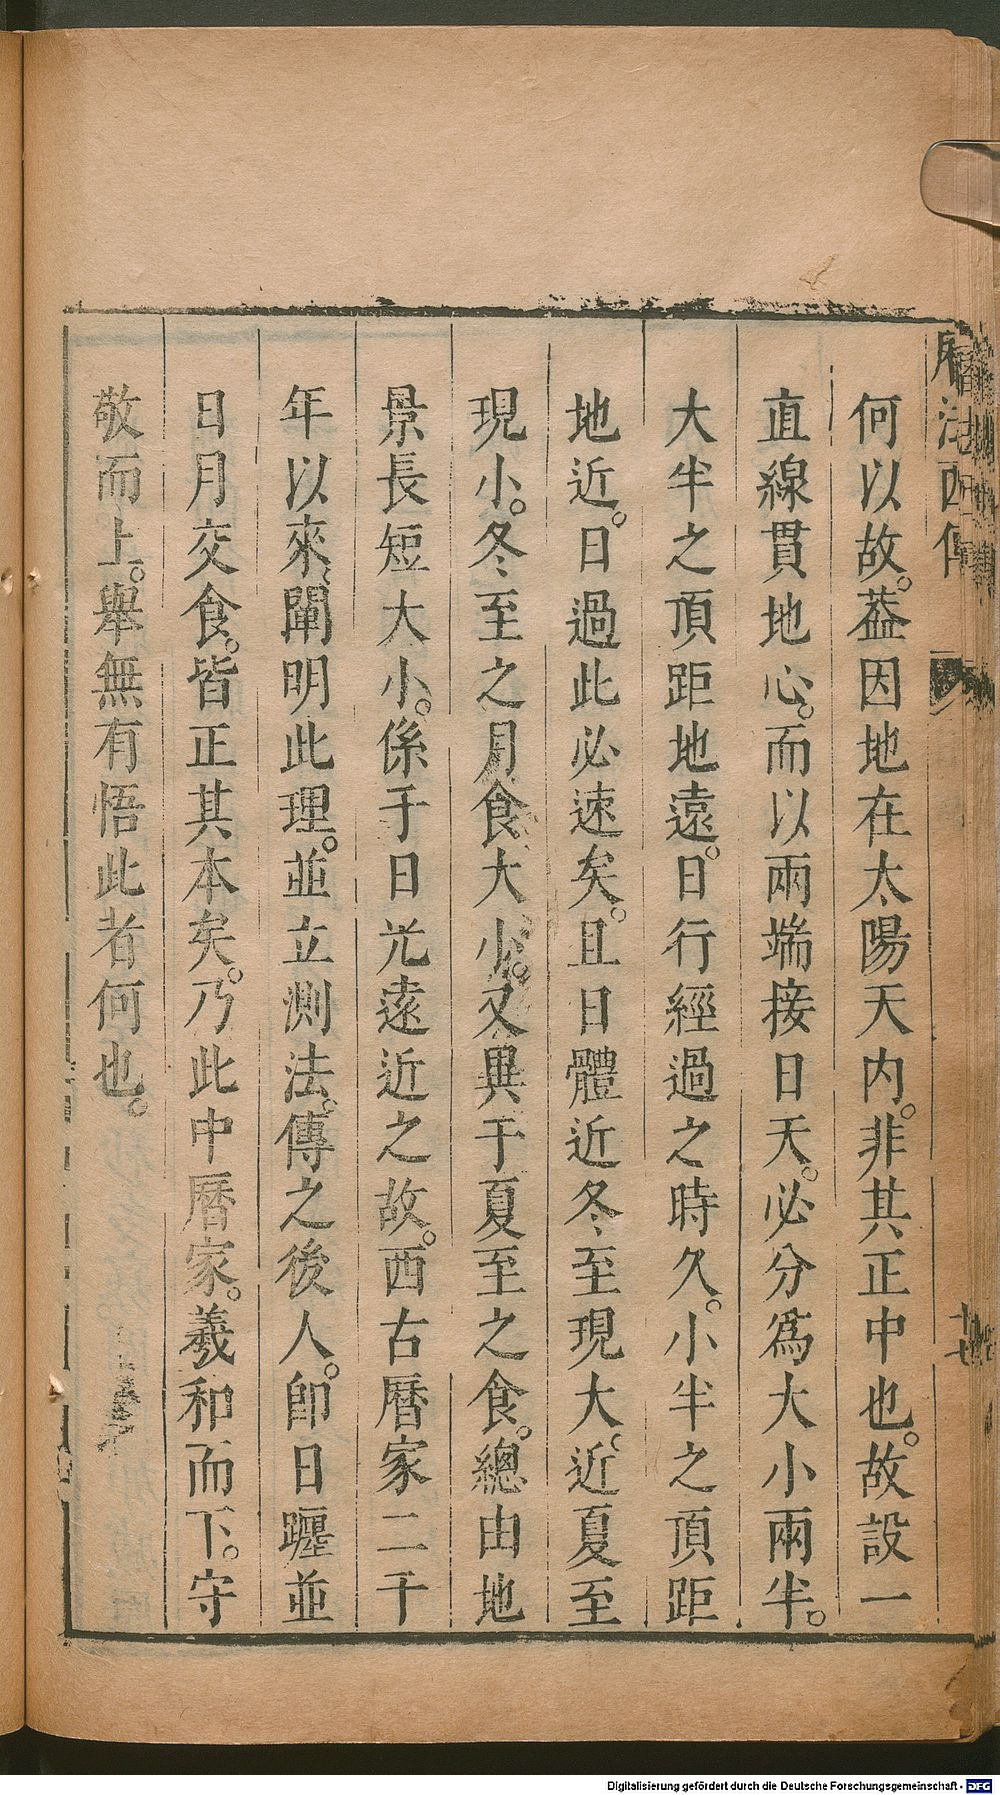 曆法西傳
十七
何以故。葢因地在太陽天内。非其正中也。故設一
直線貫地心。而以兩端接日天。必分爲大小兩半。
大半之頂距地遠。日行經過之時久。小半之頂距
地近。日過此必速矣。且日體近冬至現大。近夏至
現小。冬至之月食大小。又異于夏至之食。總由地
景長短大小。係于日光遠近之故。西古曆家二千
年以來、闡明此理。並立測法。傳之後人。卽日躔並
日月交食。皆正其本矣。乃此中曆家。羲和而下。守
敬而上。舉無有悟此者何也。
Digitalisierung gefördert durch die Deutsche Forschungsgemeinschaft - DFG